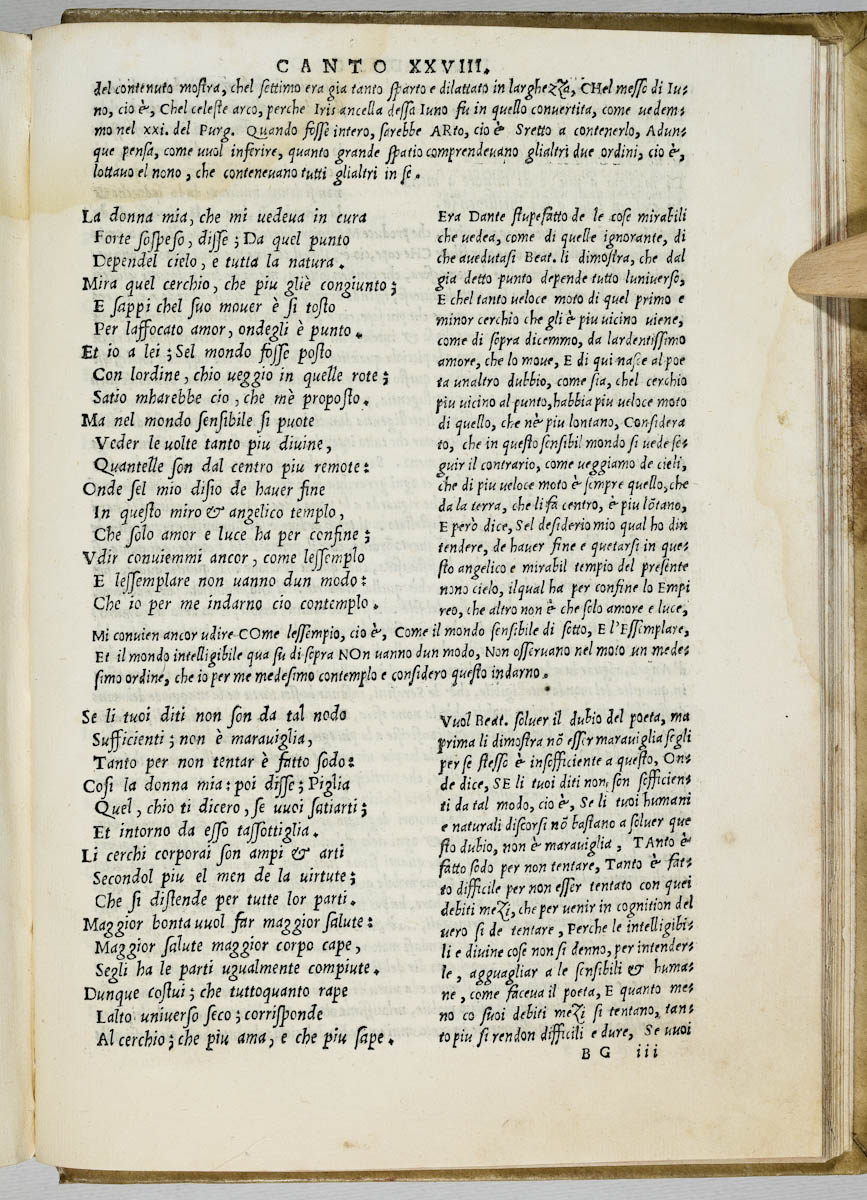 CANTO XXVIII.
del contenuto mostra, chel settimo era gia tanto sparto e dilattato in larghezza, CHel messo di Iu-
no, cio è, Chel celeste arco, perche Iris ancella dessa Iuno fu in quello conuertita, come uedem-
mo nel xxi. del Purg. Quando fosse intero, sarebbe ARto, cio è Sretto a contenerlo, Adun-
que pensa, come uuol inferire, quanto grande spatio comprendeuano glialtri due ordini, cio è,
lottauo el nono, che conteneuano tutti glialtri in se.
La donna mia, che mi uedeua in cura
Forte sospeso, disse; Da quel punto
Dependel cielo, e tutta la natura.
Mira quel cerchio, che piu gliè congiunto;
E sappi chel suo mouer è si tosto
Per laffocato amor, ondegli è punto.
Et io a lei; Sel mondo fosse posto
Con lordine, chio ueggio in quelle rote;
Satio mharebbe cio, che mè proposto.
Ma nel mondo sensibile si puote
Veder le uolte tanto piu diuine,
Quantelle son dal centro piu remote:
Onde sel mio disio de hauer fine
In questo miro & angelico templo,
Che solo amor e luce ha per confine;
Vdir conuiemmi ancor, come lessemplo
E lessemplare non uanno dun modo:
Che io per me indarno cio contemplo.
Era Dante stupefatto de le cose mirabili
che uedea, come di quelle ignorante, di
che auedutasi Beat. li dimostra, che dal
gia detto punto depende tutto luniuerso,
E chel tanto ueloce moto di quel primo e
minor cerchio che gli è piu uicino uiene,
come di sopra dicemmo, da lardentissimo
amore, che lo moue, E di qui nasce al poe
ta unaltro dubbio, come sia, chel cerchio
piu uicino al punto, habbia piu ueloce moto
di quello, che nè piu lontano, Considera
to, che in questo sensibil mondo si uede se-
guir il contrario, come ueggiamo de cieli,
che di piu ueloce moto è sempre quello, che
da la terra, che li fa centro, è piu lōtano,
E però dice, Sel desiderio mio qual ho din
tendere, de hauer fine e quetarsi in que-
sto angelico e mirabil tempio del presente
nono cielo, ilqual ha per confine lo Empi
reo, che altro non è che solo amore e luce,
Mi conuien ancor udire COme lessempio, cio è, Come il mondo sensibile di sotto, E l'Essemplare,
Et il mondo intelligibile qua su di sopra NOn uanno dun modo, Non osseruano nel moto un mede-
simo ordine, che io per me medesimo contemplo e considero questo indarno.
Se li tuoi diti non son da tal nodo
Sufficienti; non è marauiglia,
Tanto per non tentar è fatto sodo:
Cosi la donna mia: poi disse; Piglia
Quel, chio ti dicero, se uuoi satiarti;
Et intorno da esso tassottiglia.
Li cerchi corporai son ampi & arti
Secondol piu el men de la uirtute;
Che si distende per tutte lor parti.
Maggior bonta uuol far maggior salute:
Maggior salute maggior corpo cape,
Segli ha le parti ugualmente compiute.
Dunque costui; che tuttoquanto rape
Lalto uniuerso seco; corrisponde
Al cerchio; che piu ama, e che piu sape.
Vuol Beat. soluer il dubio del poeta, ma
prima li dimostra nō esser marauiglia segli
per se stesso è insefficiente a questo, On-
de dice, SE li tuoi diti non son sofficien-
ti da tal modo, cio è, Se li tuoi humani
e naturali discorsi nō bastano a soluer que
sto dubio, non è marauiglia, TAnto è
fatto sodo per non tentare, Tanto è fat-
to difficile per non esser tentato con quei
debiti mezi, che per uenir in cognition del
uero si de tentare, Perche le intelligibi-
li e diuine cose non si denno, per intender-
le, agguagliar a le sensibili & huma-
ne, come faceua il poeta, E quanto me-
no co suoi debiti mezi si tentano, tan-
to piu si rendon difficili e dure, Se uuoi
BG iii